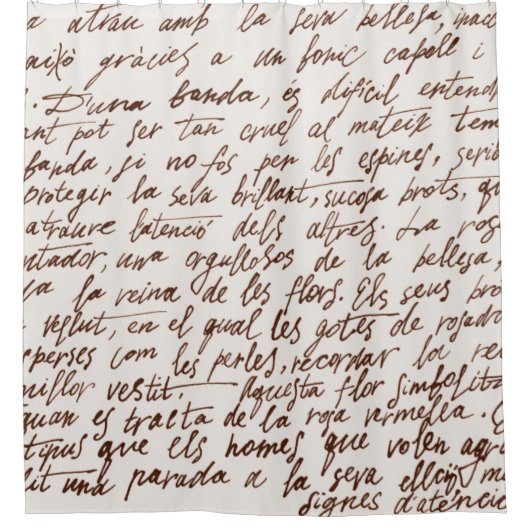 a atrau amb la seva bellesa, inac
això gràcies a un fonic capoll i
. D'una banda, es difícil entend
ant pot ser tan cruel al mateix tem
banda, si no fos per les espines, seria
protegir la seva brillant, sucosa brots, qu
atraure latenció dels altres. La ros
ntador, una orgullosos de la bellesa,
la reina de les flors. Els seus bro
vellut, en el qual les gotes de rosada
sperses com les perles, recordar la rei
millor vestit. Aquesta flor simbolitza
quan es tracta de la rosa vermella.
tipus que els homes que volen agr
dit una parada a la seva m
signes d'atencio